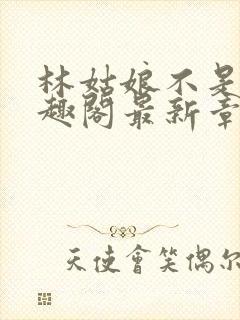 林姑娘不是
趣阁最新章
天使會笑偶尔